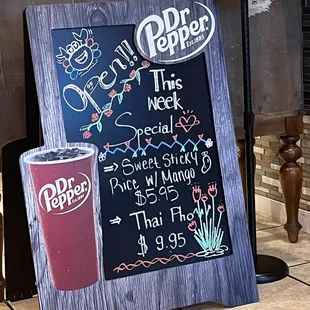 Dr
Pepper
Est.1885
Open!!!
This
week
Special
⇒ Sweet Sticky
Rice w/ Mango
$5.95
⇒ Thai Pho
$ 9.95
Dr
Pepper